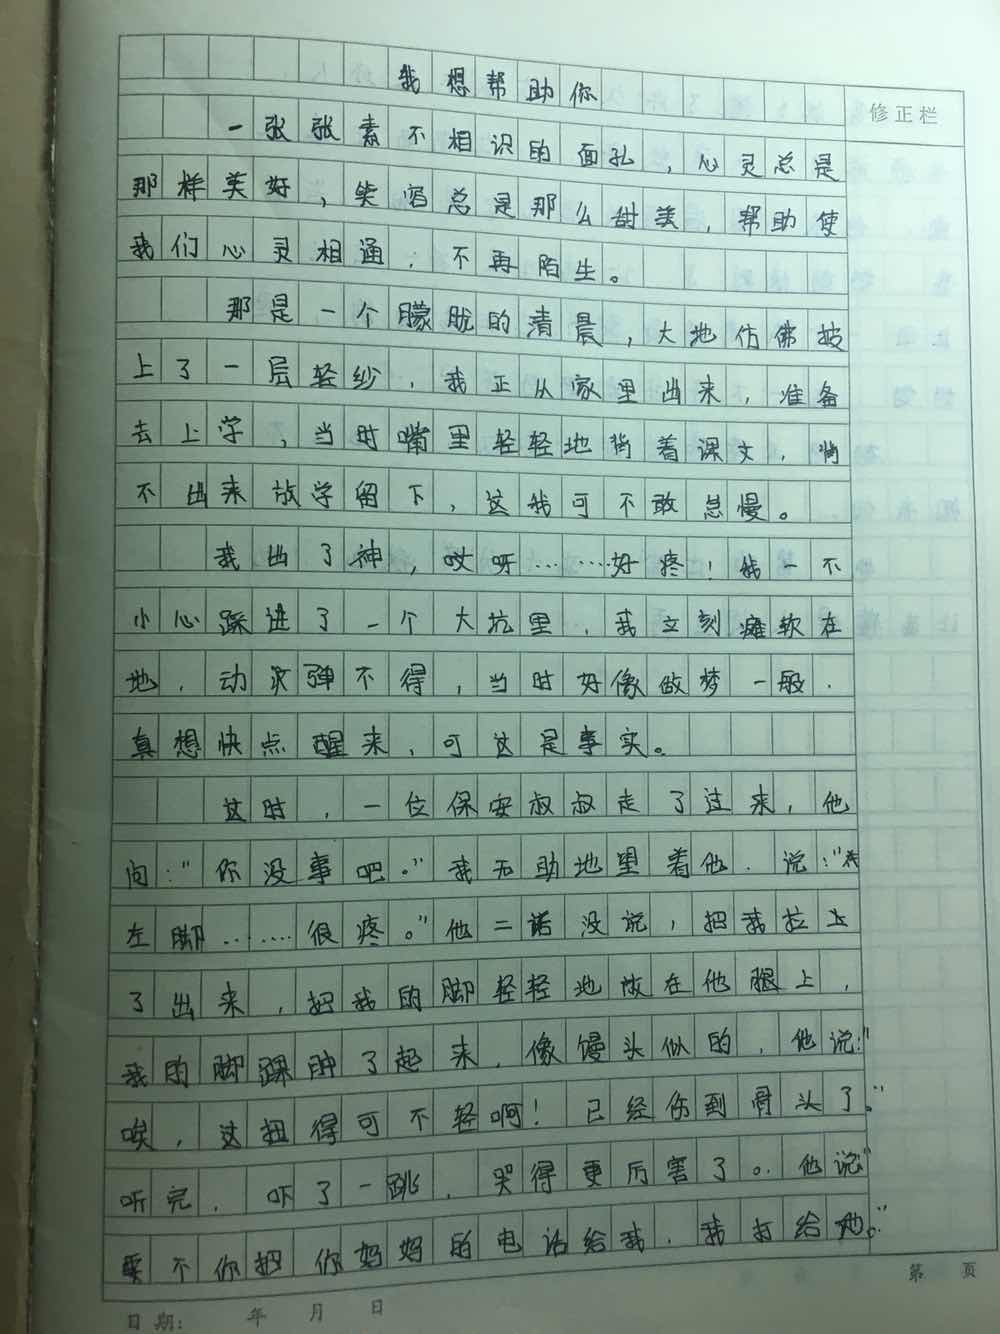 我想帮助你
修正栏
一张张素不相识的面孔，心灵总是
那样美好，笑容总是那么甜美，帮助使
我们心灵相通，不再陌生。
那是一个朦胧的清晨，大地仿佛披
上了一层轻纱，我正从家里出来，准备
去上学，当时嘴里轻轻地背着课文，背
不出来放学留下，这我可不敢怠慢。
我出了神，哎呀………好疼！我一不
小心踩进了一个大坑里，我立刻瘫软在
地，动弹不得，当时好像做梦一般，
真想快点醒来，可这是事实。
这时，一位保安叔叔走了过来，他
问："你没事吧。"我无助地望着他，说："我
左脚……很疼。"他二话没说，把我拉上
了出来，把我的脚轻轻地放在他腿上，
我的脚踝肿了起来，像馒头似的，他说："
唉，这扭得可不轻啊！已经伤到骨头了。"
听完，吓了一跳，哭得更厉害了。他说："
要不你把你妈妈的电话给我，我打给她。"
第 页
日期： 年 月 日